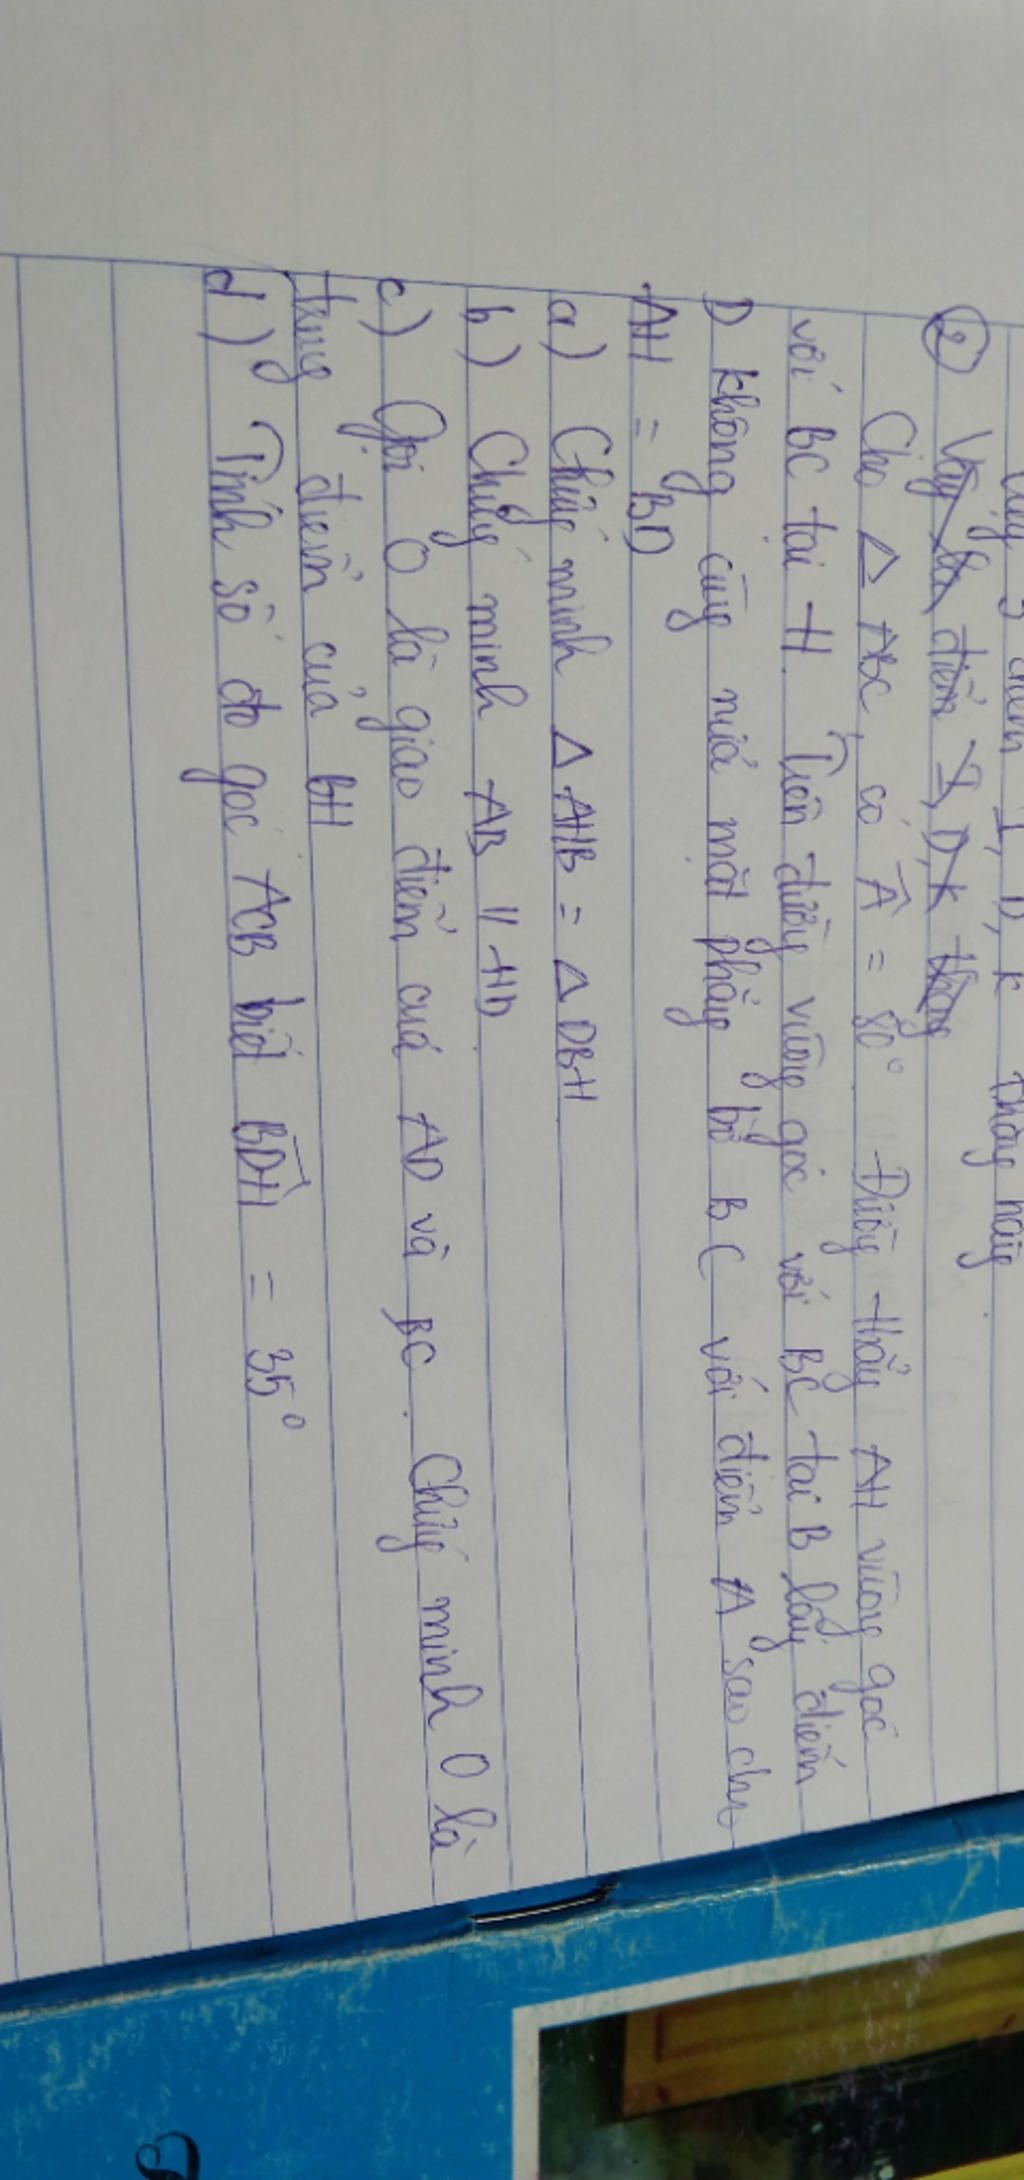 vậy 3 điểm I, D, K thẳng hàng
② Vậy ba điểm I, D, K thẳng
Cho △ ABC, có Â = 80°. Đường thẳng AH vuông góc
với BC tại H. Trên đường vuông góc với BC tại B lấy điểm
D không cùng nửa mặt phẳng bờ BC với điểm A sao cho
AH = BD
a) Chứng minh △ AHB = △ DBH
b) Chứng minh AB // HD.
c) Gọi O là giao điểm của AD và BC. Chứng minh O là
trung điểm của BH
d) Tính số đo góc ACB biết BDH = 35°